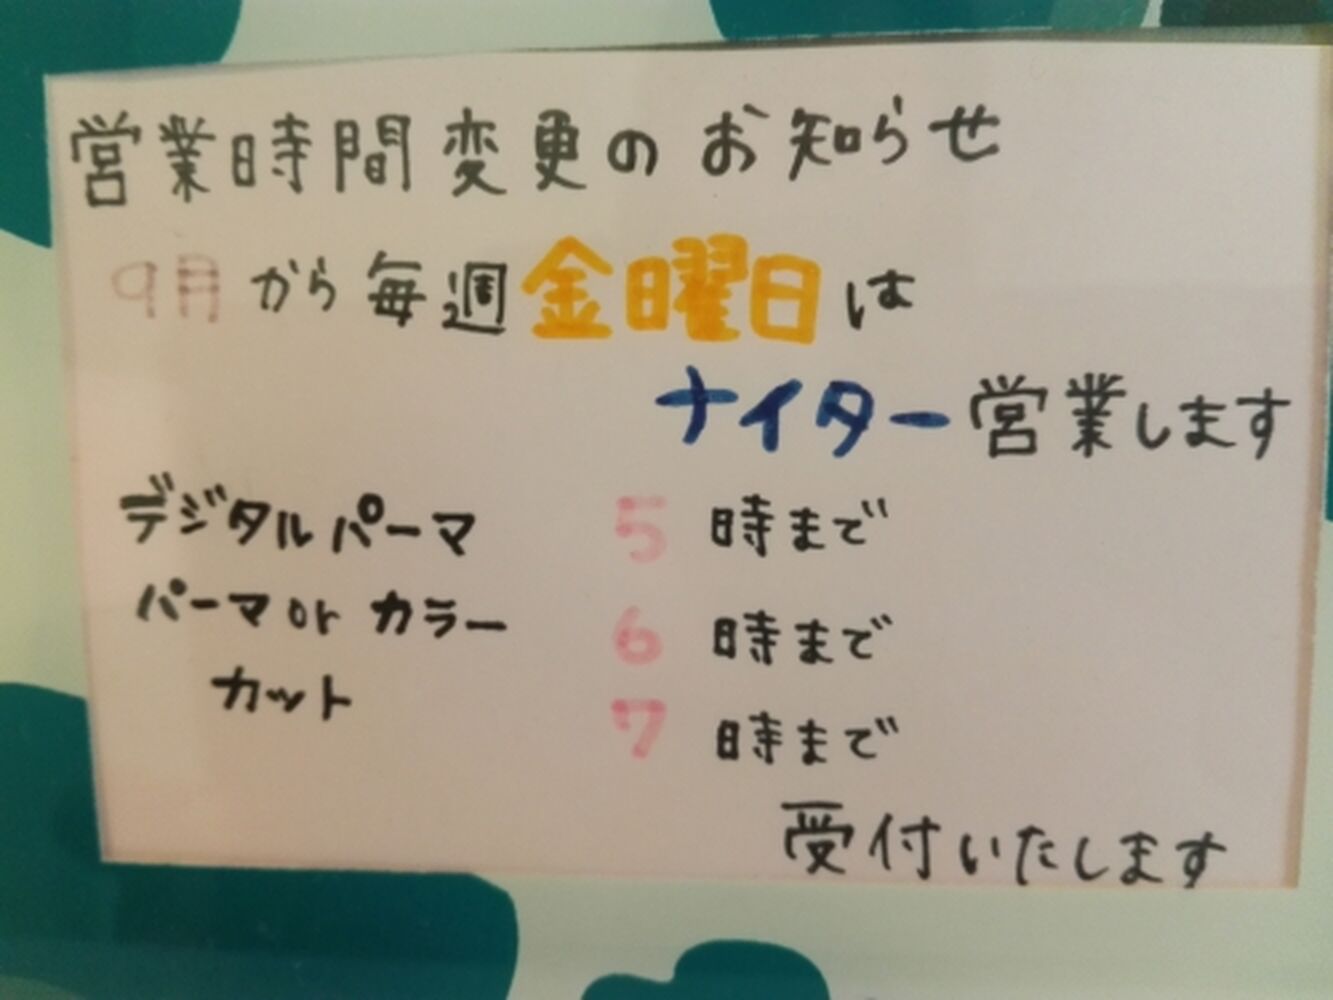 営業時間変更のお知らせ
9月から毎週金曜日は
ナイター営業します
デジタルパーマ 5時まで
パーマorカラー 6時まで
カット 7時まで
受付いたします